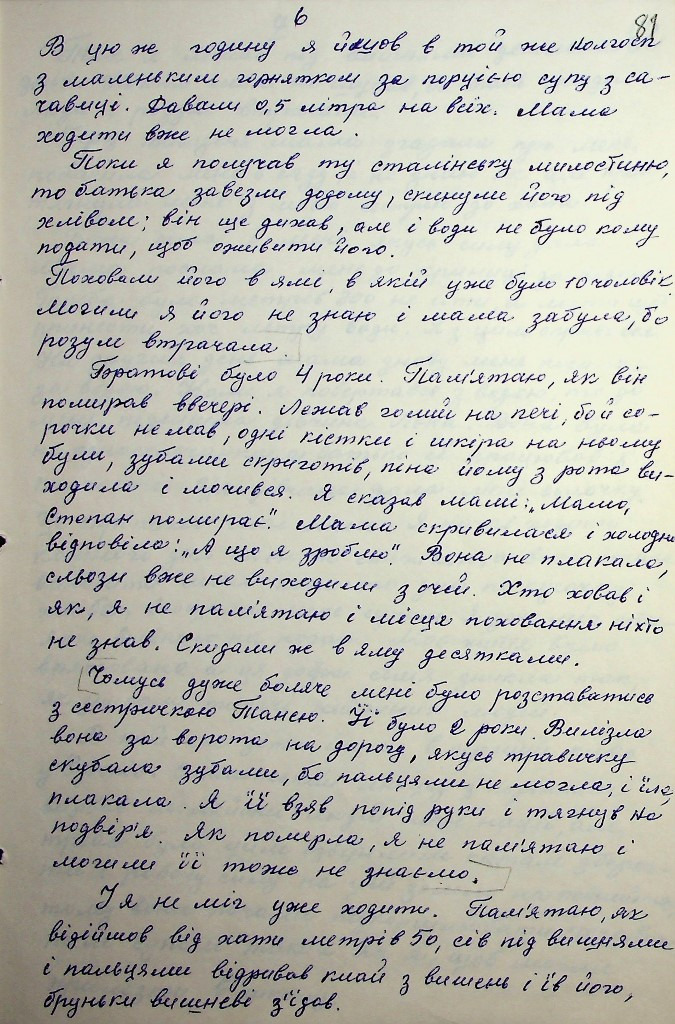 6
81
В цю же годину я йшов в той же колгосп
з маленьким горнятком за порцією супу з са-
чавиці. Давали 0,5 літра на всіх. Мама
ходити вже не могла.
Поки я получав ту сталінську милостиню,
то батька завезли додому, скинули його під
хлівом; він ще дихав, але і води не було кому
подати, щоб оживити його.
Поховали його в ямі, в якій уже було 10 чоловік.
Могили я його не знаю і мама забула, бо
розум втрачала.
Братові було 4 роки. Пам'ятаю, як він
помирав ввечері. Лежав голий на печі, бо й со-
рочки не мав, одні кістки і шкіра на ньому
були, зубами скриготів, піна йому з рота ви-
ходила і мочився. Я сказав мамі: „Мамо,
Степан помирає". Мама скривилася і холодно
відповіла: „А що я зроблю". Вона не плакала,
сльози вже не виходили з очей. Хто ховав і
як, я не пам'ятаю і місця поховання ніхто
не знав. Скидали ж в яму десятками.
Чомусь дуже боляче мені було розставатись
з сестричкою Танею. Їй було 2 роки. Вилізла
вона за ворота на дорогу, якусь травичку
скубала зубами, бо пальцями не могла, і їла,
плакала. Я її взяв попід руки і тягнув на
подвір'я. Як померла, я не пам'ятаю і
могили її тоже не знаємо.
І я не міг уже ходити. Пам'ятаю, як
відійшов від хати метрів 50, сів під вишнями
і пальцями відривав клай з вишень і їв його,
бруньки вишневі з'їдав.